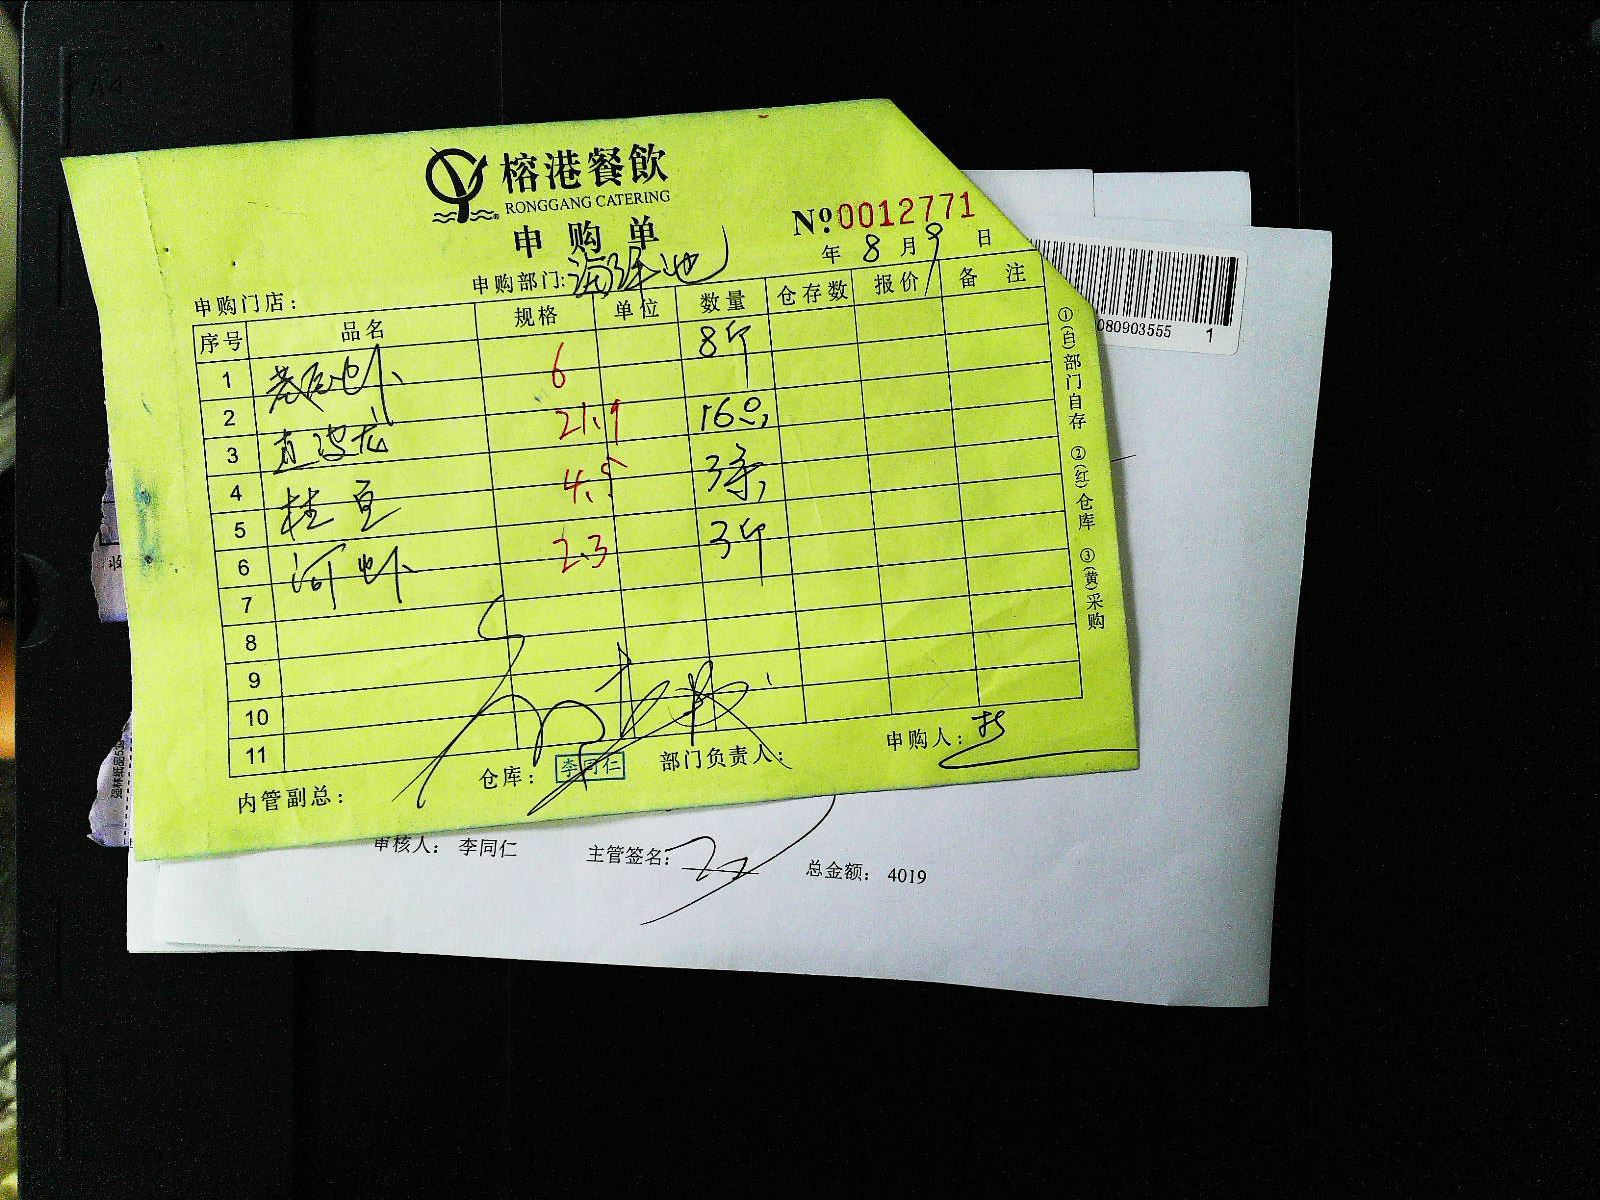 A4
榕港餐飲
RONGGANG CATERING
申购单
№ 0012771
年 8 月 9 日
申购门店： 申购部门: 海鲜池
序号 品名 规格 单位 数量 仓存数 报价 备注
1 6 8斤
2 21.9 16只
3
4 桂 4.5 3条
5 河虾 2.3 3斤
6
7
8
9
10
11
内管副总： 仓库： 李同仁 部门负责人： 申购人：
①(白)部门自存 ②(红)仓库 ③(黄)采购
080903555 1
收
审核人： 李同仁 主管签名： 总金额： 4019